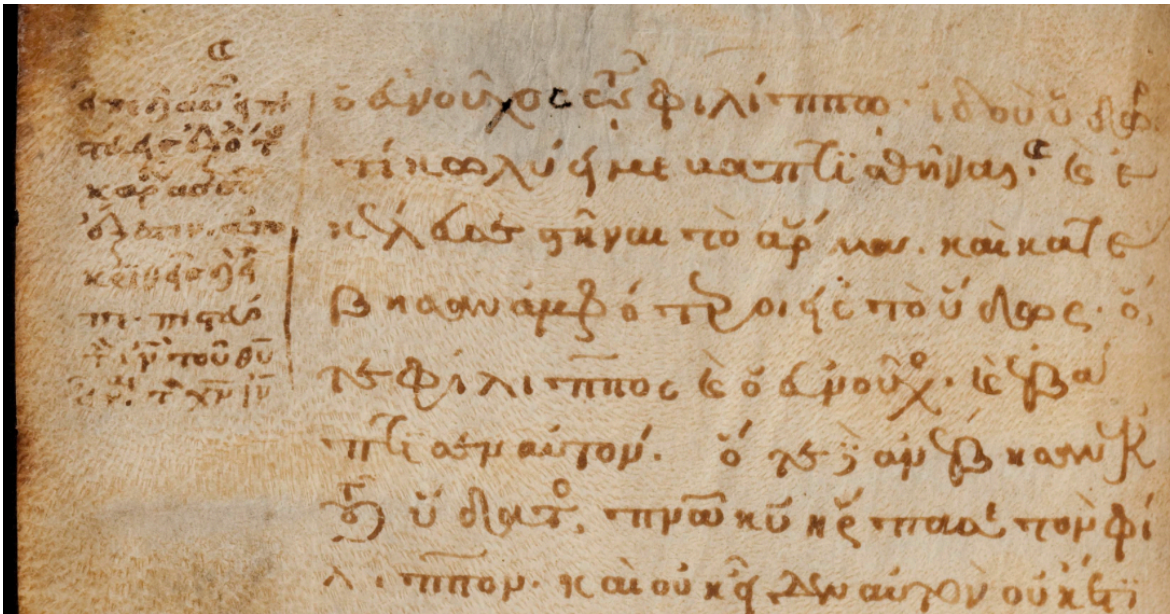 εἶπε δὲ αὐτῶ εἰ πι
στεύεις ἐξ ὅλης τῆς
καρδίας σου
ἔξεστιν. ἀπο
κριθεὶς δὲ εἶ
πε· πιστεύω
τὸν ῡν̄ τοῦ θ̄ῡ
εἶναι τὸν χ̄ν̄ ῑν̄
ὁ εὐνοῦχος τῶ φιλίππω· ἰδοὺ ὕδωρ
τί κωλύει με βαπτισθῆναι· καὶ ἐ
κέλευσε στῆναι τὸ ἅρμα. καὶ κατέ
βησαν ἀμφότεροι εἰς τὸ ὕδωρ· ὅ
τε φίλιππος καὶ ὁ εὐνοῦχος· καὶ ἐβά
πτισεν αὐτόν. ὅτε δὲ ἀνέβησαν ἐκ
τοῦ ὕδατος, π̄ν̄ᾱ κ̄ῡ ἥρπασε τὸν φί
λιππον· καὶ οὐκ εἶδεν αὐτὸν οὐκέτι